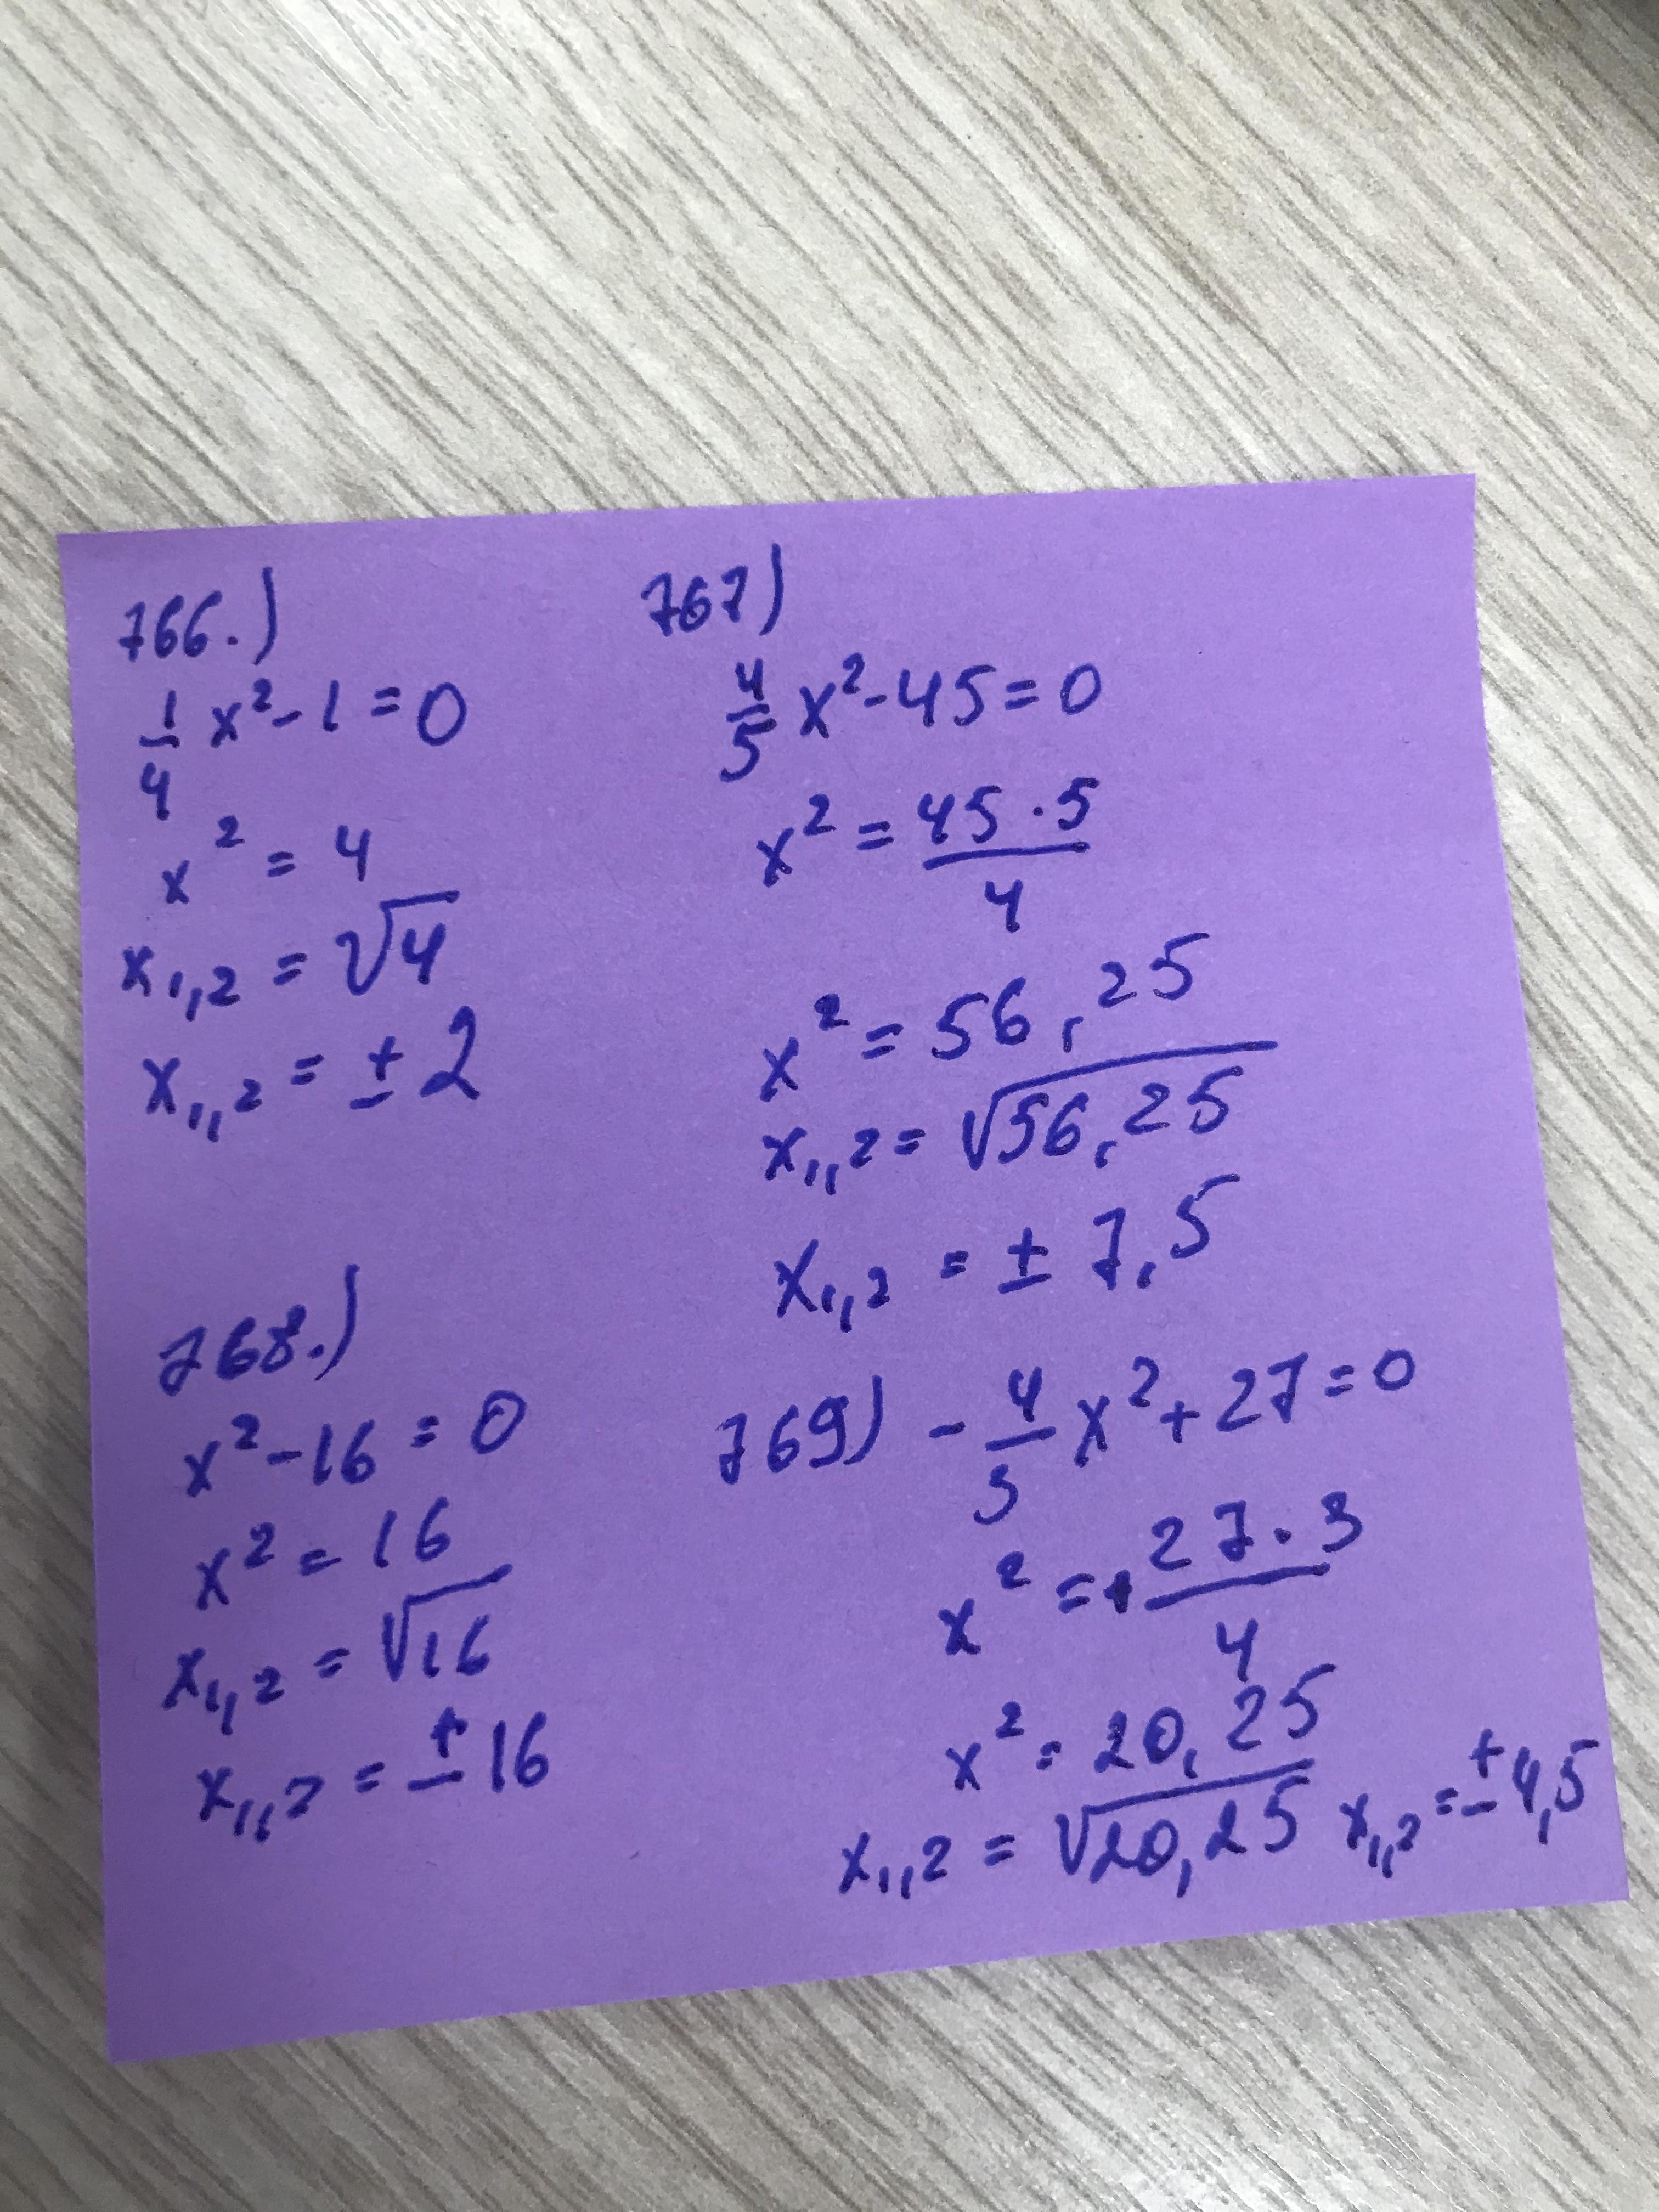 766.)
1/4 x² - 1 = 0
x² = 4
x₁,₂ = √4
x₁,,₂ = ± 2
767)
4/5 x² - 45 = 0
x² = 45 · 5 / 4
x² = 56,25
x₁,,₂ = √56,25
x₁,,₂ = ± 7,5
768.)
x² - 16 = 0
x² = 16
x₁,,₂ = √16
x₁,,₂ = ± 16
769) - 4/3 x² + 27 = 0
x² = + 27 · 3 / 4
x² = 20,25
x₁,,₂ = √20,25 x₁,,₂ = ± 4,5